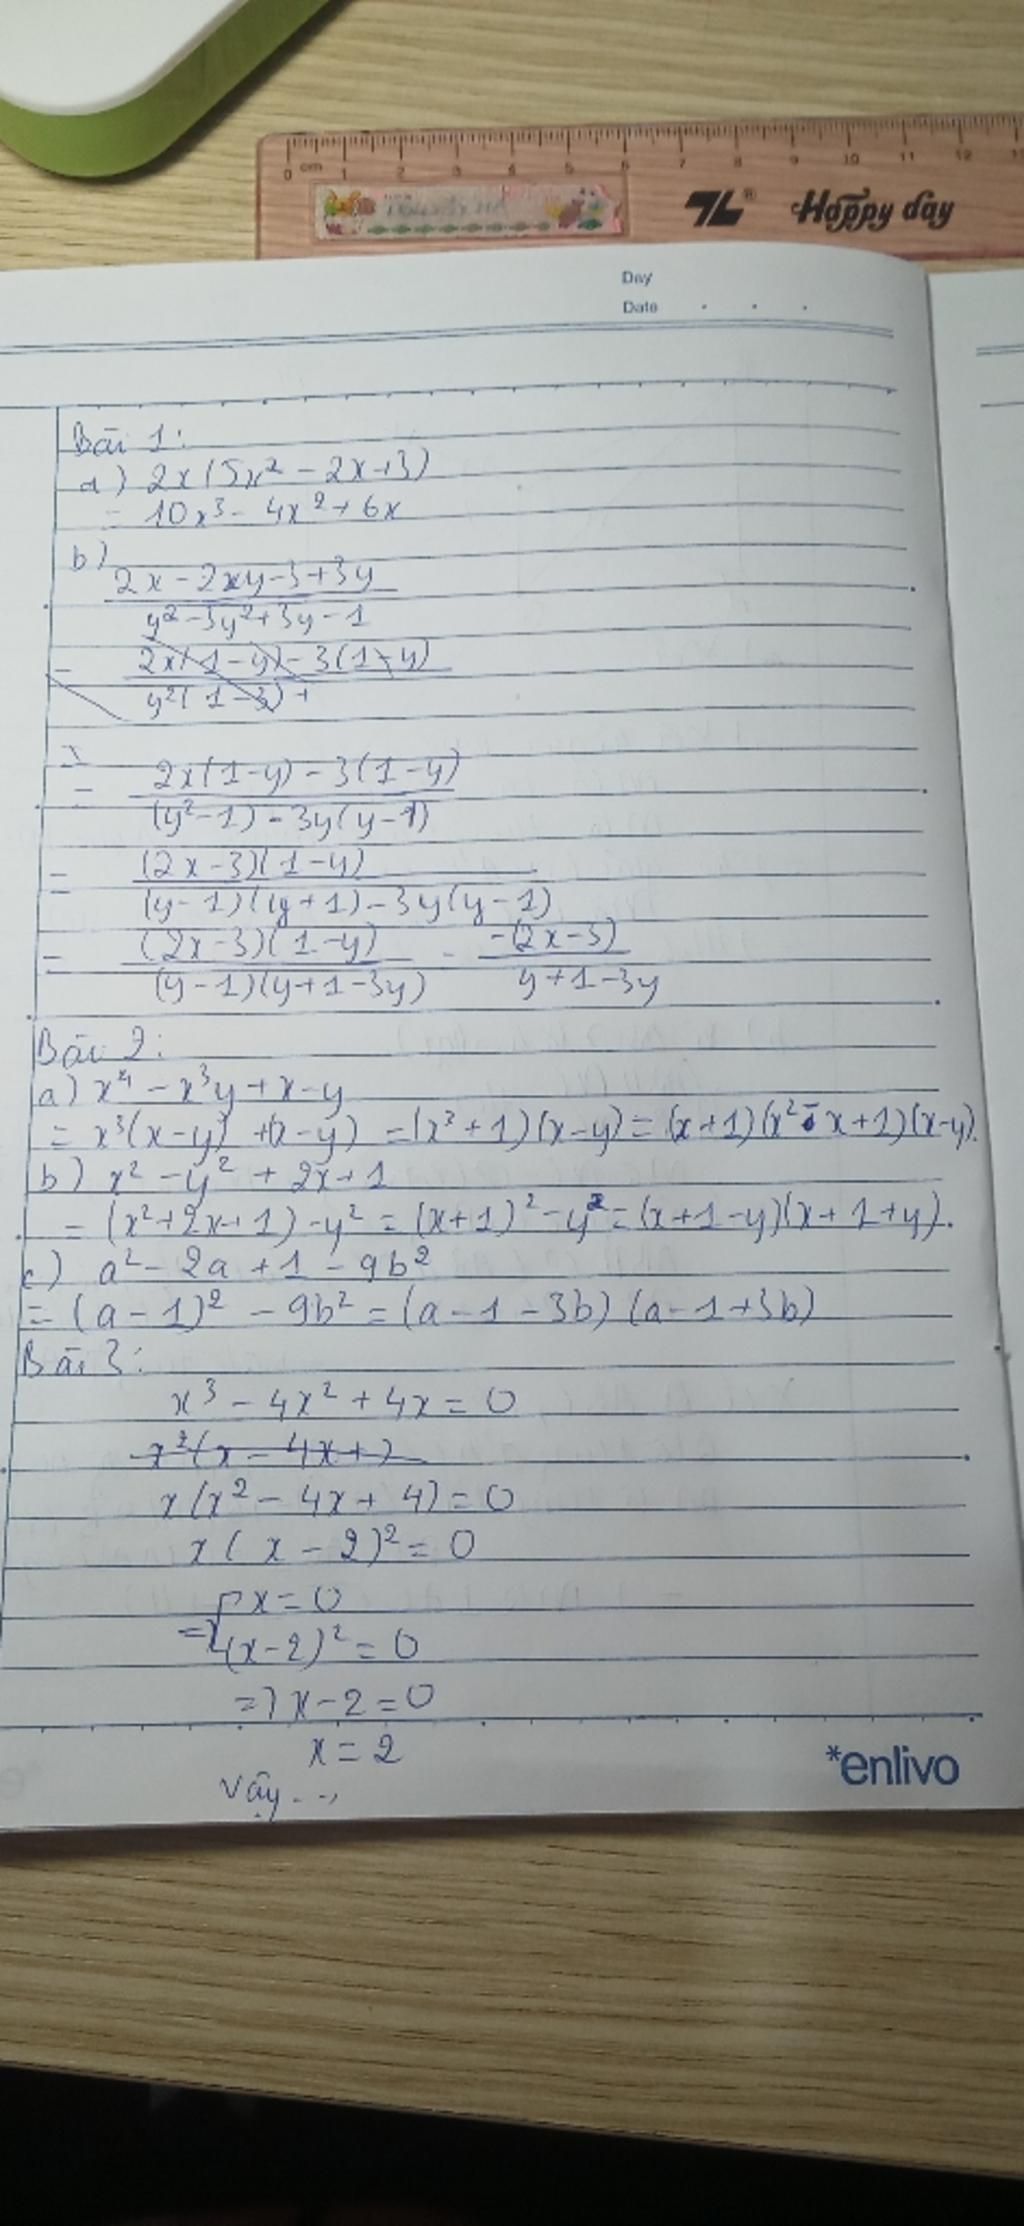 0 cm 1 2 3 4 5 6 7 8 9 10 11 12 13
TL® Happy day
Day
Date . . .
Bài 1:
a) 2x(5x² - 2x+3)
= 10x³ - 4x² + 6x
b)
2x - 2xy - 3 + 3y
y² - 3y² + 3y - 1
= 2x(1-y) - 3(1-y)
y²(1-3) +
= 2x(1-y) - 3(1-y)
(y²-1) - 3y(y-1)
= (2x-3)(1-y)
(y-1)(y+1) - 3y(y-1)
= (2x-3)(1-y) = -(2x-3)
(y-1)(y+1-3y) y+1-3y
Bài 2:
a) x⁴ - x³y + x - y
= x³(x-y) + (x-y) = (x³+1)(x-y) = (x+1)(x²-x+1)(x-y).
b) x² - y² + 2x + 1
= (x²+2x+1) - y² = (x+1)² - y² = (x+1-y)(x+1+y).
c) a² - 2a + 1 - 9b²
= (a-1)² - 9b² = (a-1-3b)(a-1+3b)
Bài 3:
x³ - 4x² + 4x = 0
x²(x - 4x +
x(x² - 4x + 4) = 0
x(x-2)² = 0
=> [x = 0
(x-2)² = 0
=> x - 2 = 0
x = 2
Vậy...
*enlivo